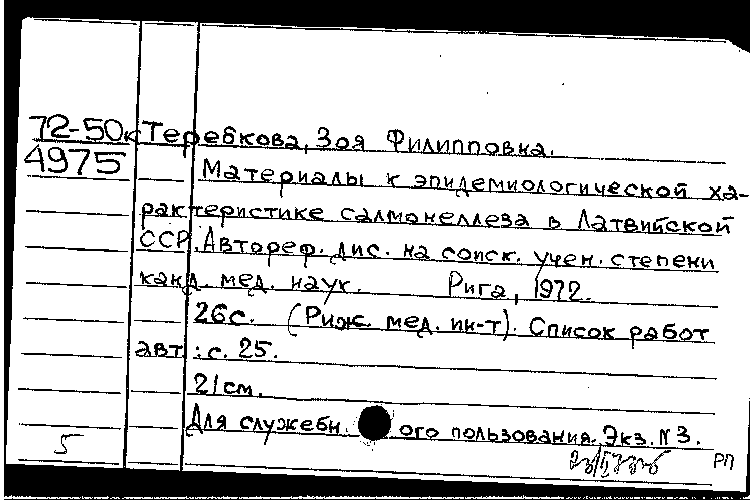 72-50к Теребкова, Зоя Филипповна.
4975 Материалы к эпидемиологической ха-
рактеристике салмонеллеза в Латвийской
ССР. Автореф. дис. на соиск. учен. степени
канд. мед. наук. Рига, 1972.
26с. (Риж. мед. ин-т). Список работ
авт.: с. 25.
21см.
Для служебн. ого пользования. Экз. N 3.
5
РП